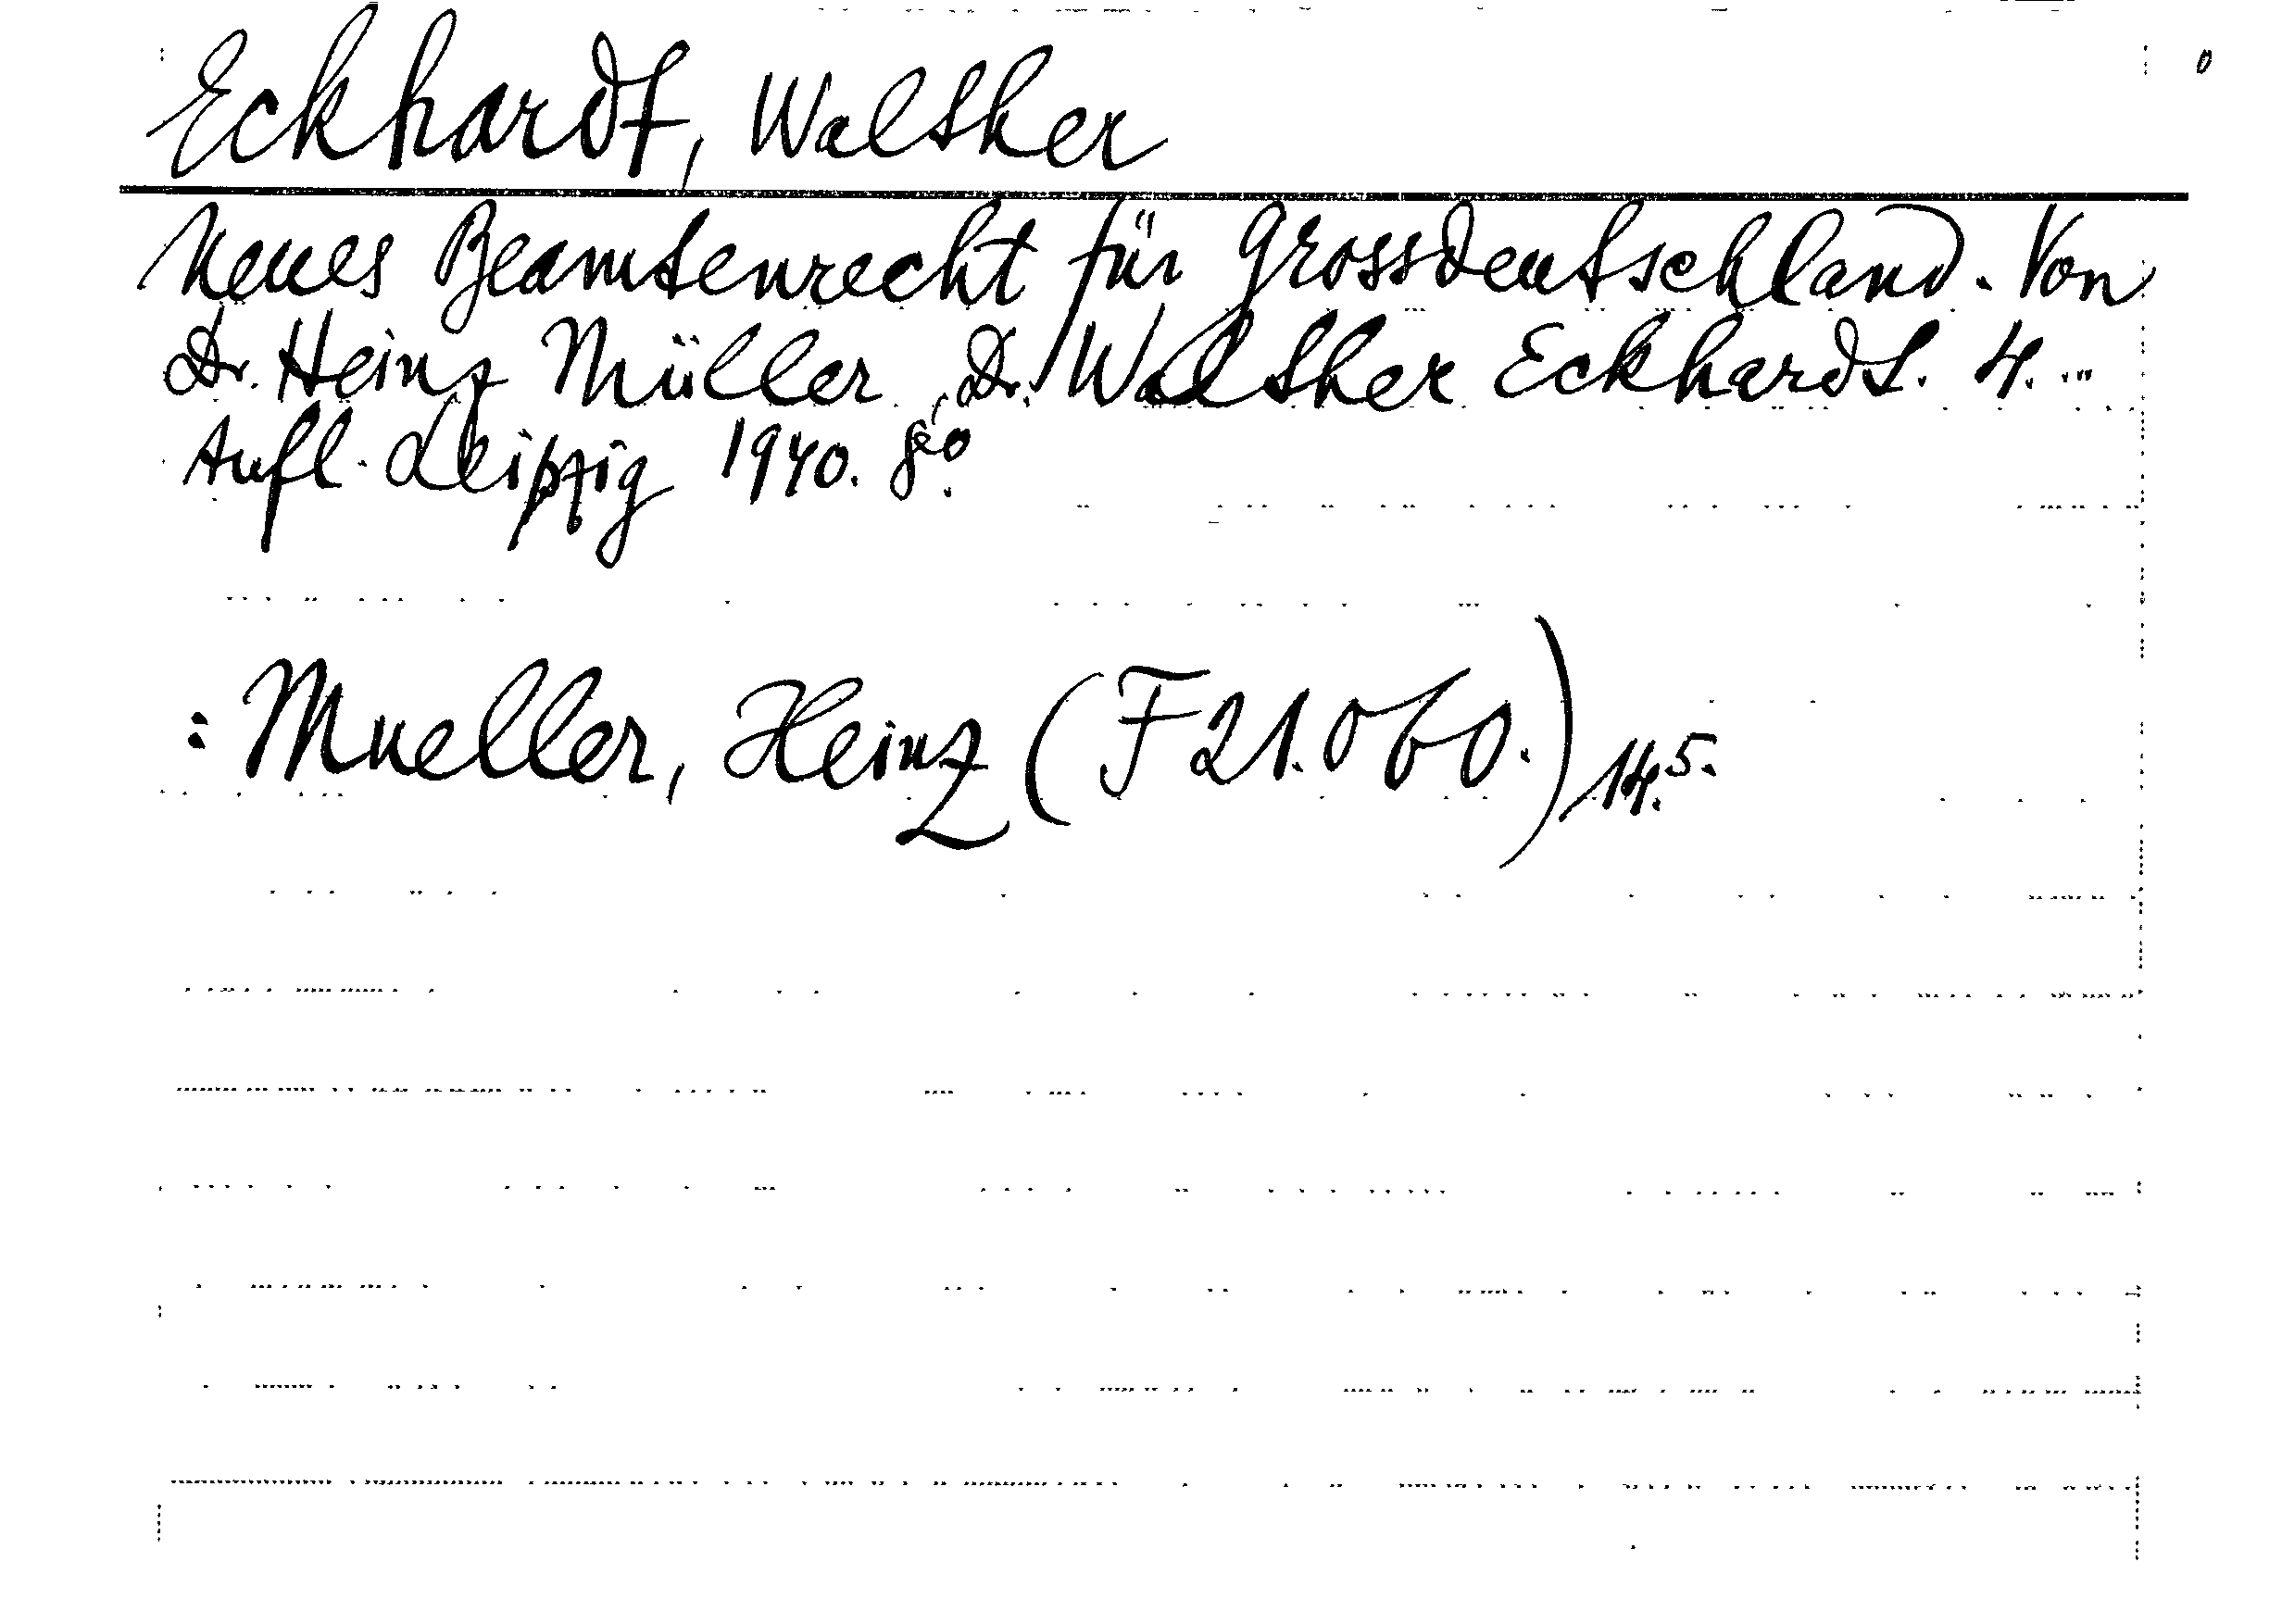 Eckhardt, Walther
Neues Beamtenrecht für Grossdeutschland. Von
Dr. Heinz Müller, Dr. Walther Eckhardt. 4. ...
Aufl. Leipzig 1940. 8°.
: Mueller, Heinz (F 21.060.) 14.5.